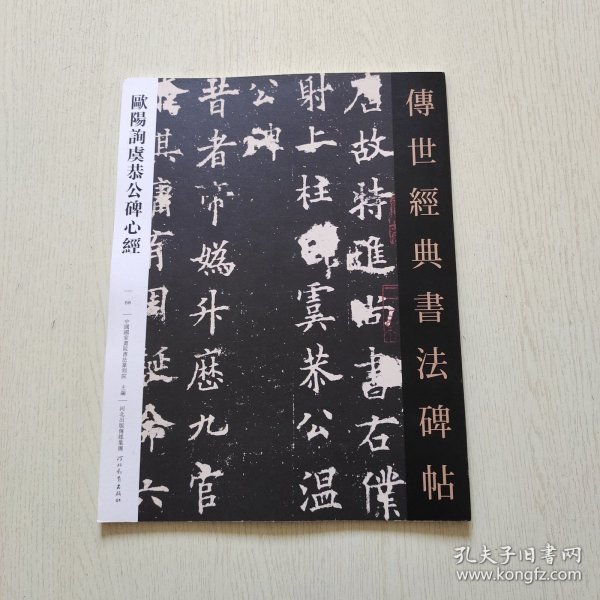 傳世經典書法碑帖
唐故特進尚書右僕
射上柱國虞恭公温
公碑
昔者帝媯升歷九官
其庸育周誕命六
歐陽詢虞恭公碑心經
68
中國國家畫院書法篆刻院 主編
河北出版傳媒集團
河北教育出版社
孔夫子旧书网
www.kongfz.com